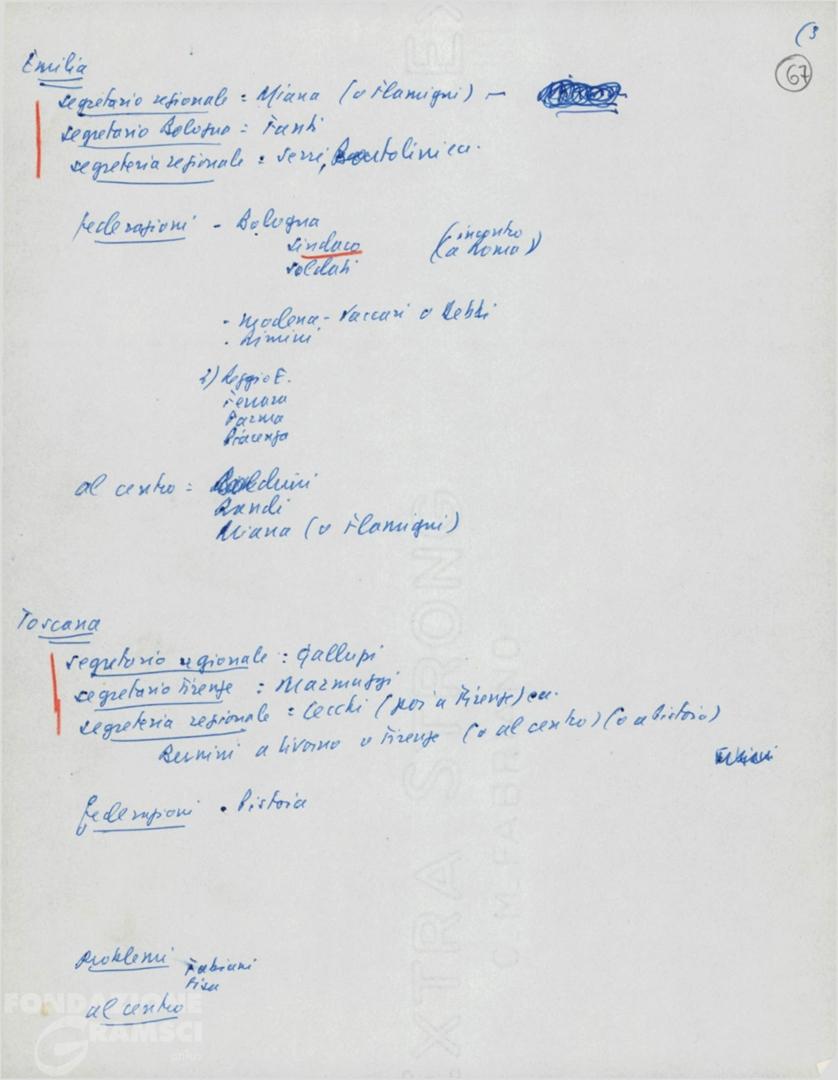 (3
67
Emilia
segretario regionale = Miana (o Flamigni) -
segretario Bologna = Fanti
segreteria regionale = Serri, Bartolini ecc.
federazioni - Bologna
sindaco (incontro
soldati a Roma)
- Modena - Vaccari o Debbi
- Rimini
2) Reggio E.
Ferrara
Parma
Piacenza
al centro = Boldrini
Bandi
Miana (o Flamigni)
Toscana
segretario regionale = Galluzzi
segretario Firenze = Marmuggi
segreteria regionale = Cecchi (poi a Firenze) ecc.
Bernini a Livorno o Firenze (o al centro) (o a Pistoia)
federazioni - Pistoia
problemi Fabiani
Pisa
al centro
EXTRA STRONG
C.M. FABRIANO
FONDAZIONE
GRAMSCI
onlus